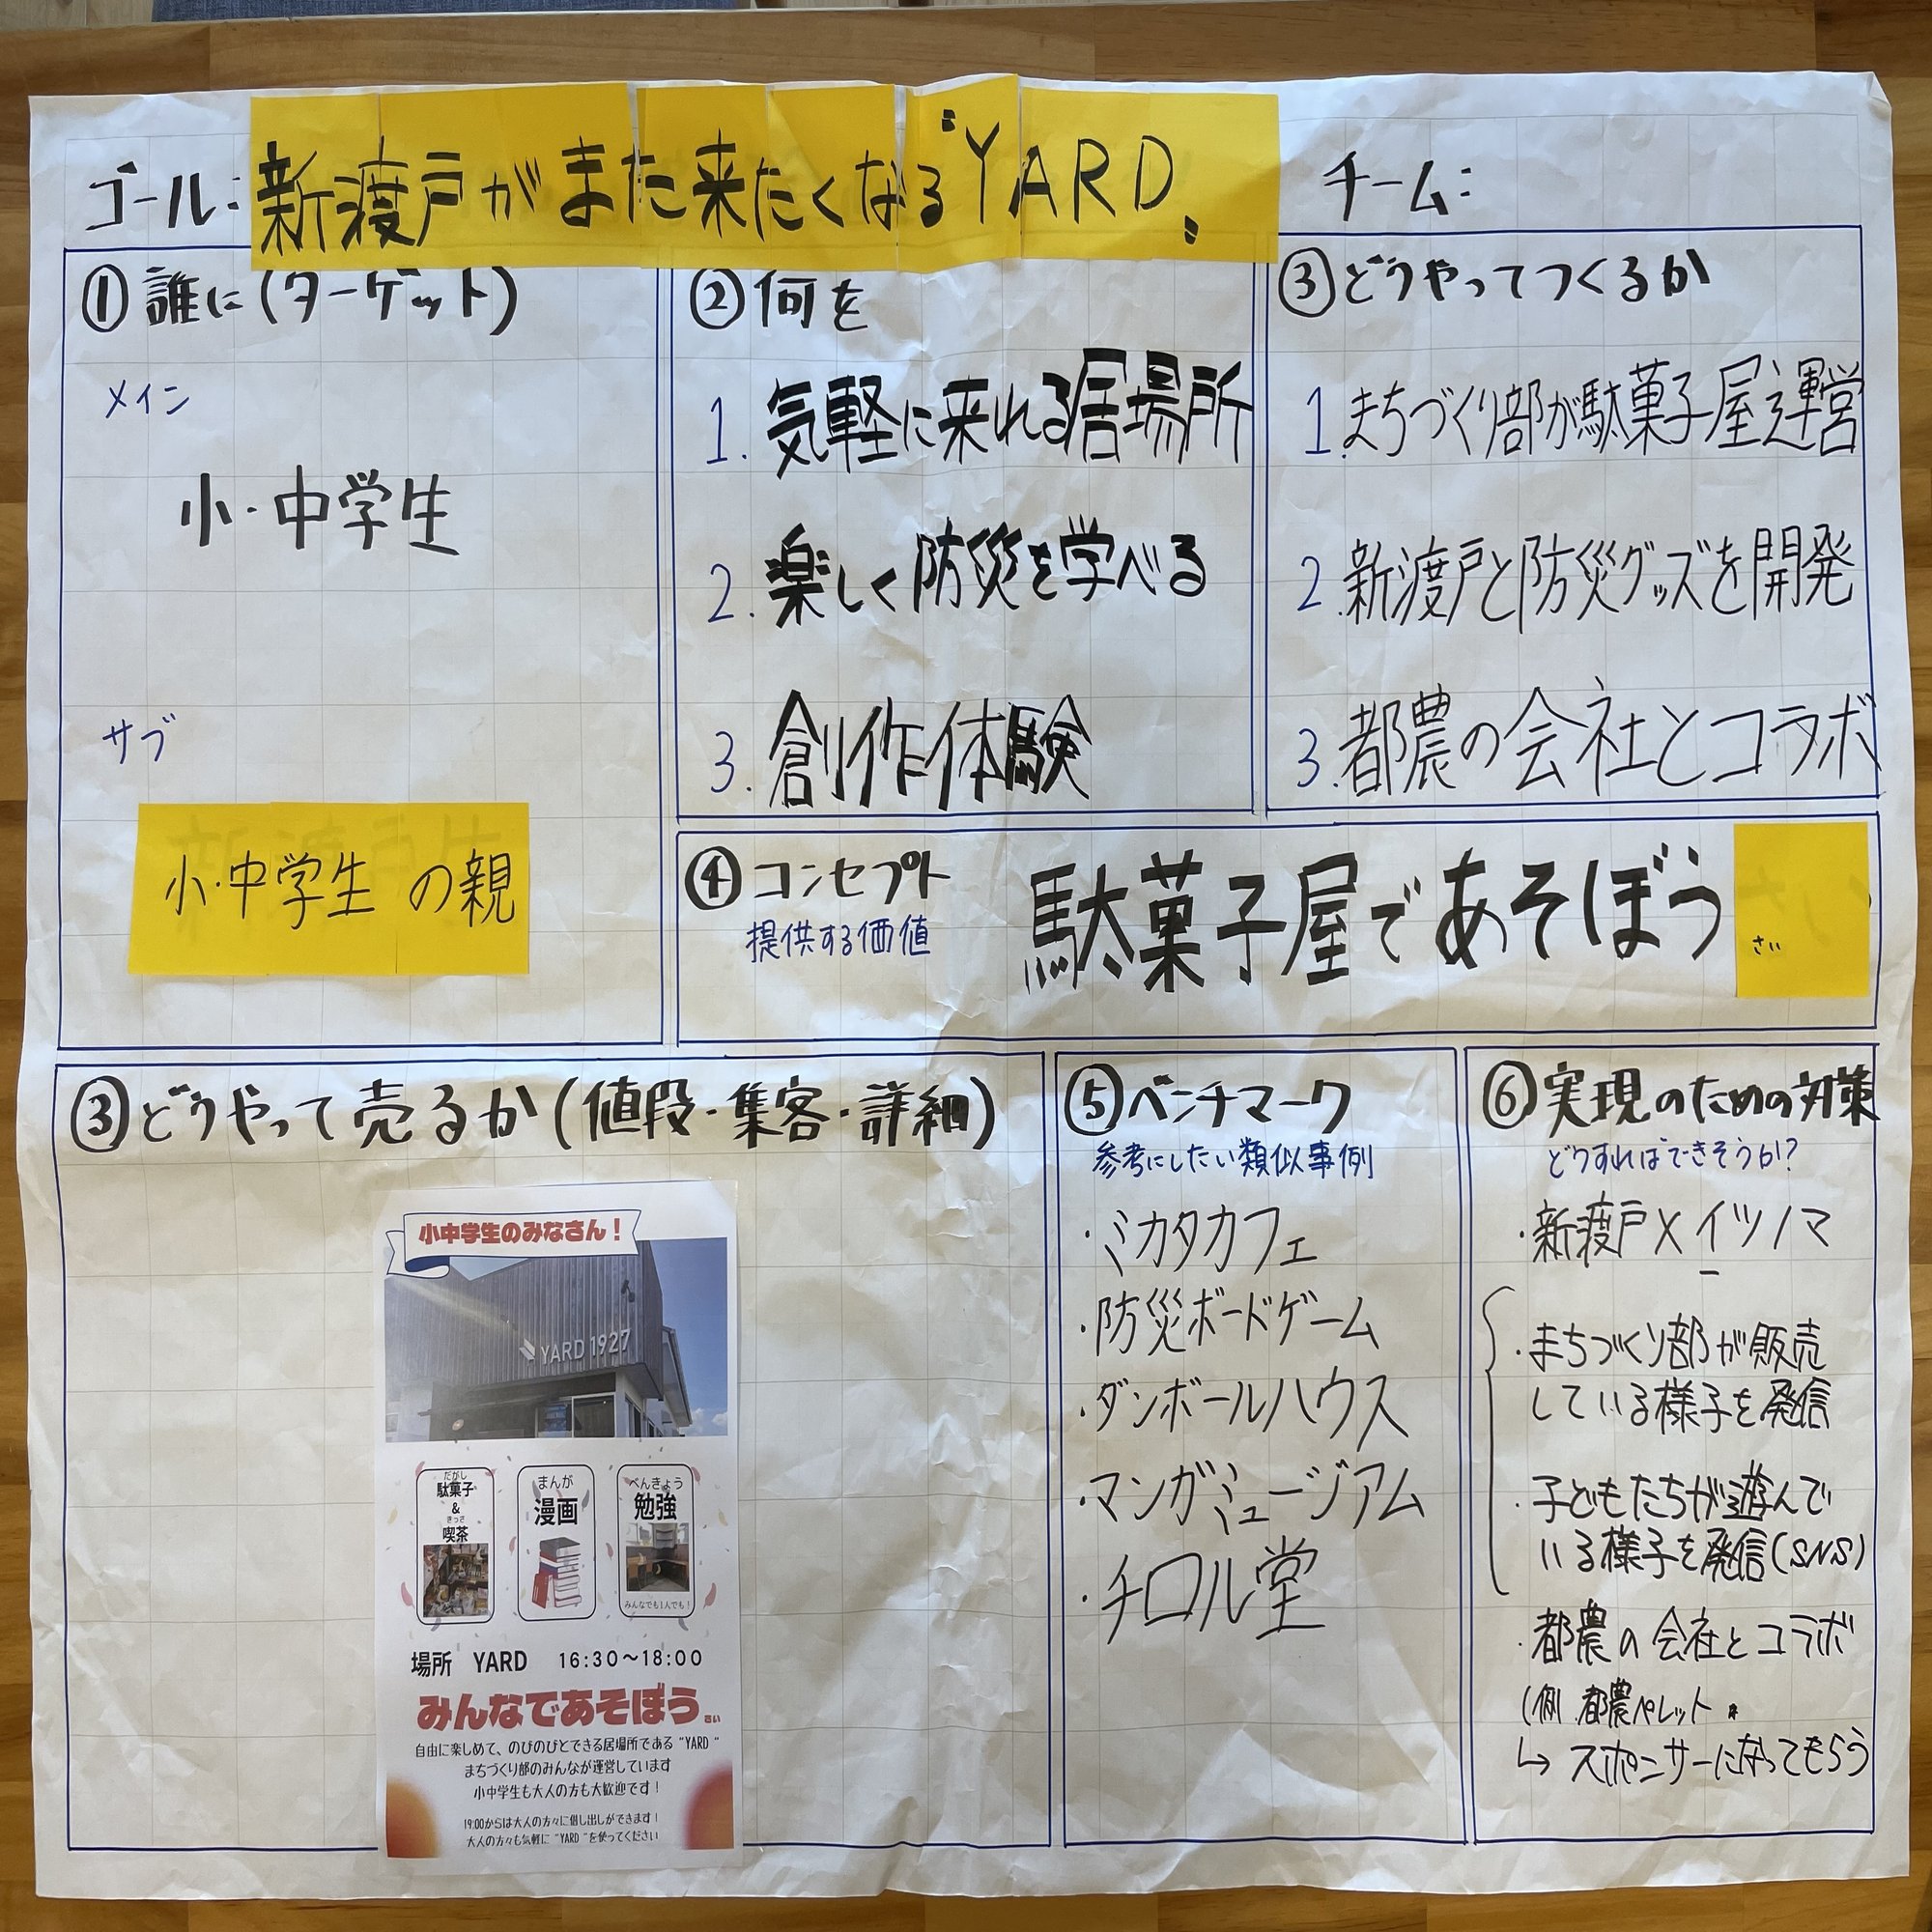 ゴール: 新渡戸がまた来たくなる〝YARD〟
チーム:
①誰に(ターゲット)
メイン
小・中学生
サブ
小・中学生 の親
②何を
1. 気軽に来れる居場所
2. 楽しく防災を学べる
3. 創作体験
③どうやってつくるか
1. まちづくり部が駄菓子屋運営
2. 新渡戸と防災グッズを開発
3. 都農の会社とコラボ
④コンセプト
提供する価値
駄菓子屋であそぼう
さい
③どうやって売るか(値段・集客・詳細)
小中学生のみなさん！
YARD 1927
だがし
駄菓子
&
きっさ
喫茶
まんが
漫画
べんきょう
勉強
みんなでも1人でも！
場所 YARD 16:30～18:00
みんなであそぼう さい
自由に楽しめて、のびのびとできる居場所である "YARD "
まちづくり部のみんなが運営しています
小中学生も大人の方も大歓迎です！
19:00からは大人の方々に貸し出しができます！
大人の方々も気軽に "YARD "を使ってください
⑤ベンチマーク
参考にしたい類似事例
・ミカタカフェ
・防災ボードゲーム
・ダンボールハウス
・マンガミュージアム
・チロル堂
⑥実現のための対策
どうすればできそうか?
・新渡戸×イツノマ
・まちづくり部が販売
している様子を発信
・子どもたちが遊んで
いる様子を発信(SNS)
・都農の会社とコラボ
(例 都農ペレット
↳ スポンサーになってもらう